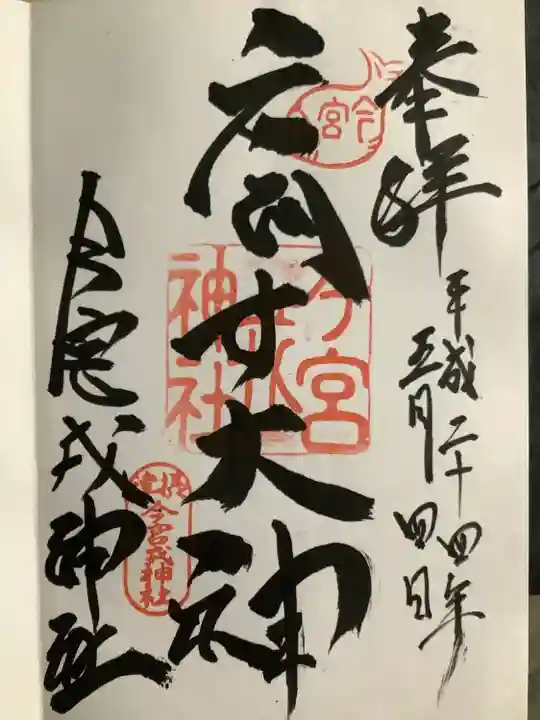 奉拝
平成二十四年
五月四日
今宮
廣田大神
今宮戎神社
今宮戎神社
摂津
今宮戎神社